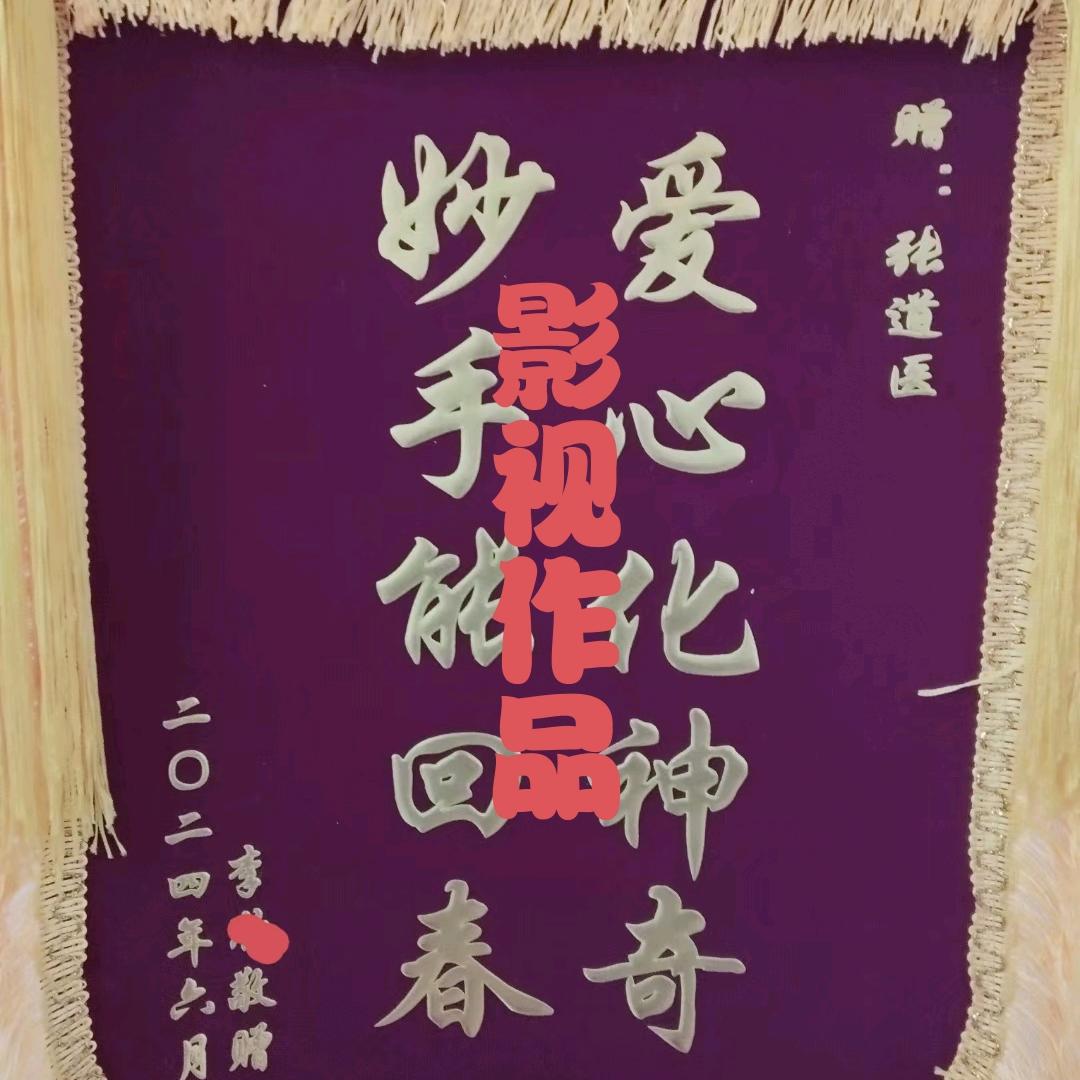 赠：张道医
爱心化神奇
妙手能回春
李敬赠
二〇二四年六月
影视作品